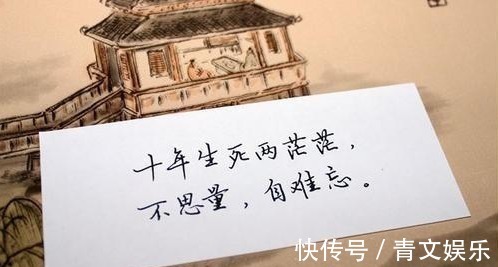 十年生死两茫茫，
不思量，自难忘。
快传号/青文娱乐